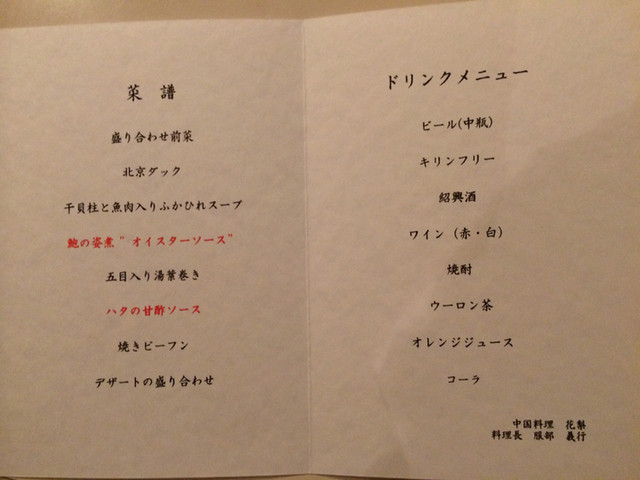 菜 譜
盛り合わせ前菜
北京ダック
干貝柱と魚肉入りふかひれスープ
鮑の姿煮" オイスターソース"
五目入り湯葉巻き
ハタの甘酢ソース
焼きビーフン
デザートの盛り合わせ
ドリンクメニュー
ビール(中瓶)
キリンフリー
紹興酒
ワイン（赤・白）
焼酎
ウーロン茶
オレンジジュース
コーラ
中国料理 花梨
料理長 服部 義行